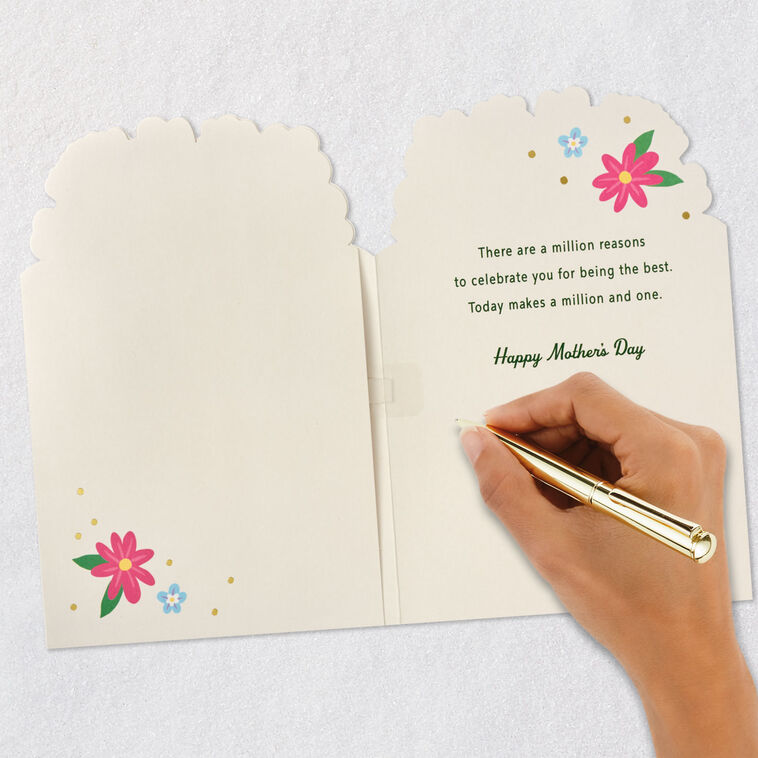 There are a million reasons
to celebrate you for being the best.
Today makes a million and one.
Happy Mother's Day